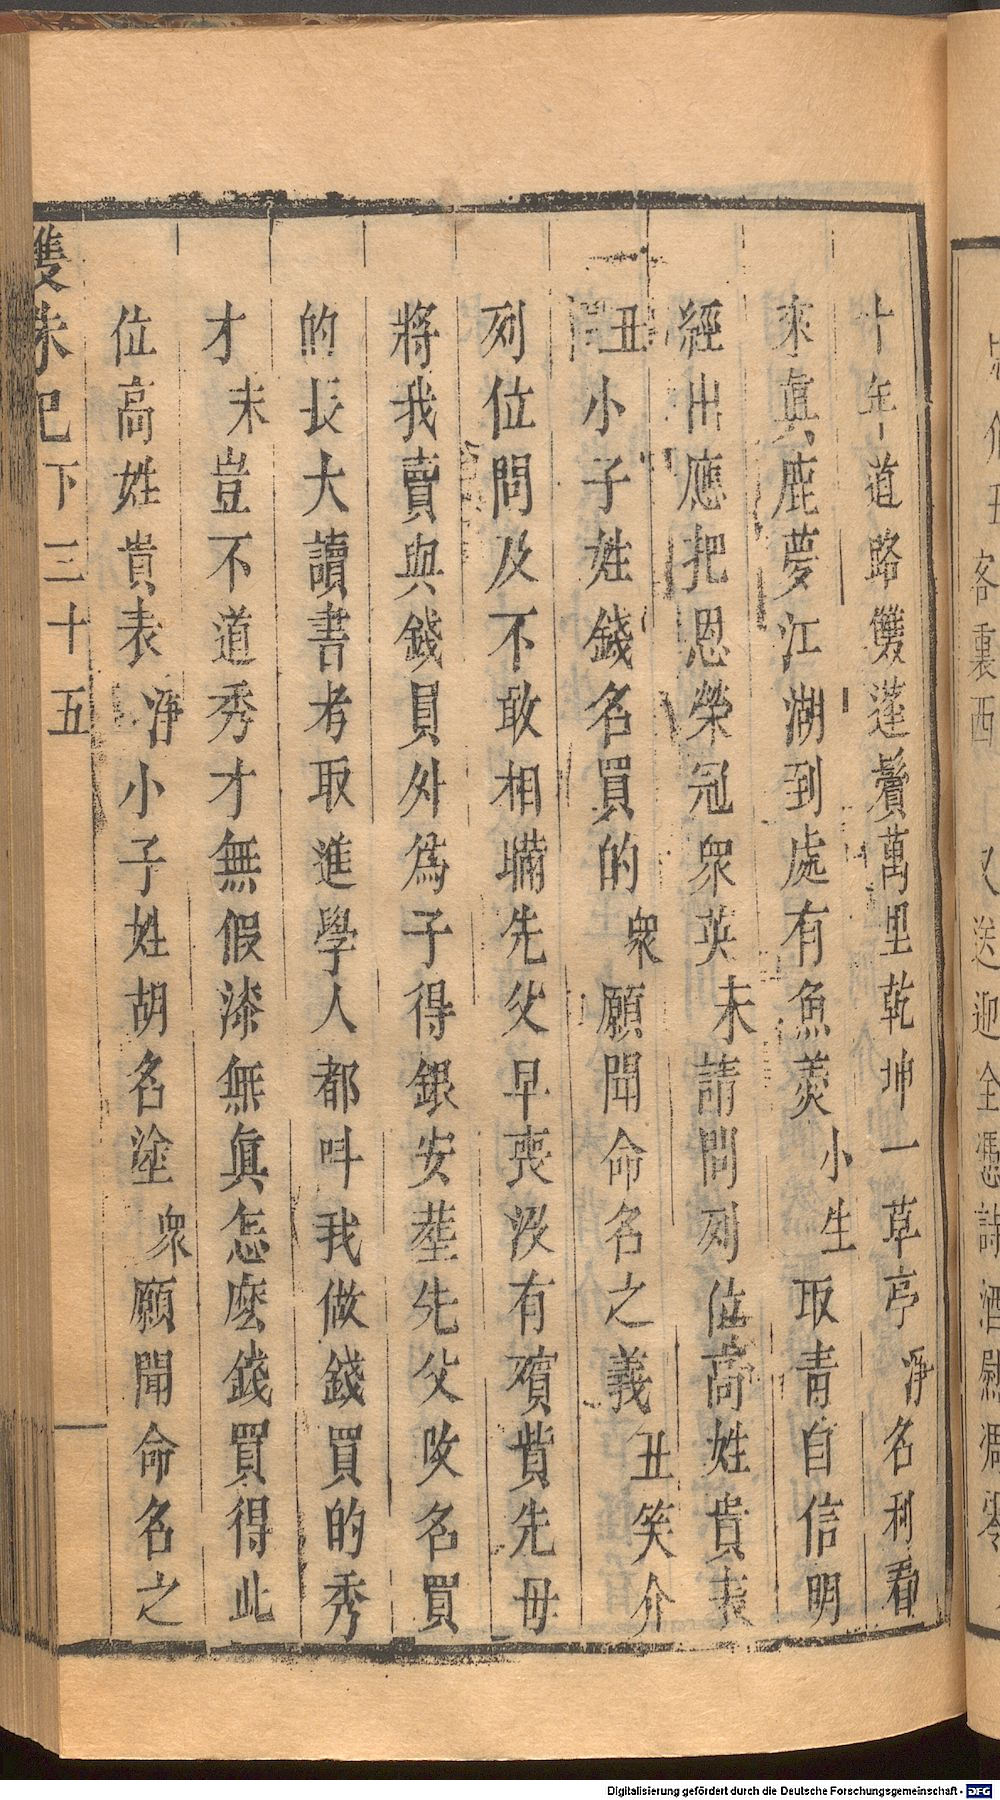 十年道路雙蓬鬢萬里乾坤一草亭淨名利看
來眞鹿夢江湖到處有魚羹小生取青自信明
經出應把恩榮冠衆英末請問列位高姓貴表
丑小子姓錢名買的衆願聞命名之義丑笑介
列位問及不敢相瞞先父早喪沒有殯貲先母
將我賣與錢員外爲子得銀安塟先父改名買
的長大讀書考取進學人都呌我做錢買的秀
才末豈不道秀才無假漆無眞怎麽錢買得此
位高姓貴表淨小子姓胡名塗衆願聞命名之
雙珠記下三十五
客裏西
又送迎全憑詩酒慰凋零
Digitalisierung gefördert durch die Deutsche Forschungsgemeinschaft - DFG